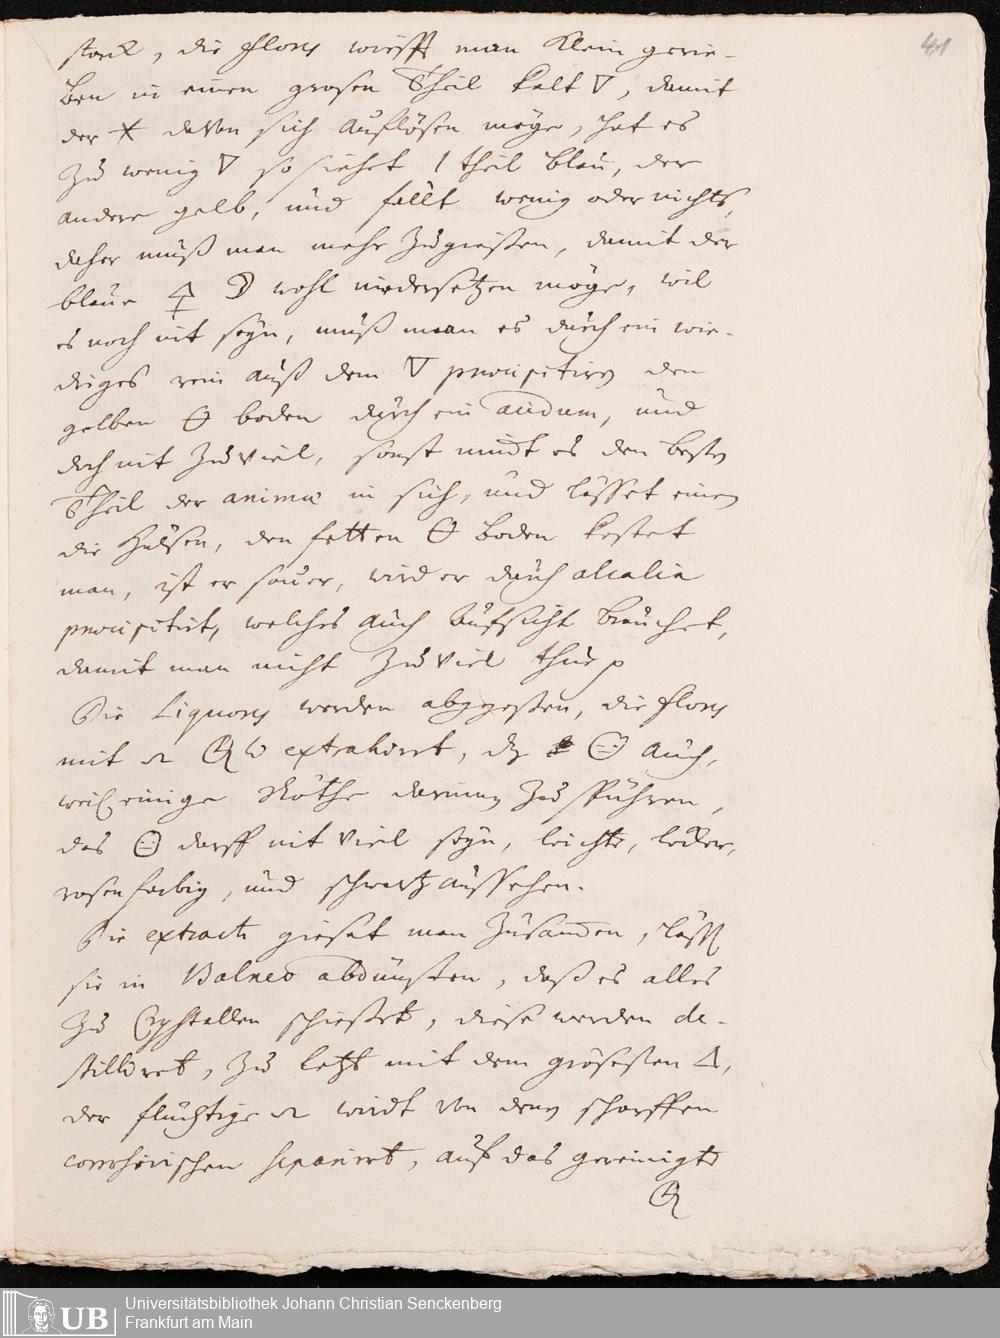 41
starck, die flores wirfft man klein gerie-
ben in einen grosen Theil kalt 🜄, damit
der davon sich auflösen möge, hat es
zu wenig 🜄 so siehet 1 theil blau, der
andere gelb, und fällt wenig oder nichts,
daher muß man mehr zugiessen, damit der
blaue 🜍 ☽ wohl niedersetzen möge, wil
es noch nit seyn, muß man es durch ein wie-
driges rein auß dem 🜄 præcipitiren den
gelben boden durch ein acidum, und
doch nit zu viel, sonst nimt es den besten
Theil der animæ in sich, und lässet einen
die Hülsen, den fetten boden kostet
man, ist er sauer, wird er durch alcalia
præcipitirt, welches auch aufsicht brauchet,
damit man nicht zu viel thue
Die Liquores werden abgegossen, die flores
mit extrahirt, auch,
weil einige Röthe darinnen zu spühren,
das darff nit viel seyn, leicht, locker,
rosenfarbig, und schwartz aussehen.
Die extracta gieset man zusammen, läst
sie in Balneo abdünsten, daß es alles
zu Crystallen schiesset, diese werden de-
stilliret, zu letzt mit dem grösesten 🜂,
der flüchtige wirdt von dem scharffen
corrosivischen separirt, auf das gereinigte
UB
Universitätsbibliothek Johann Christian Senckenberg
Frankfurt am Main